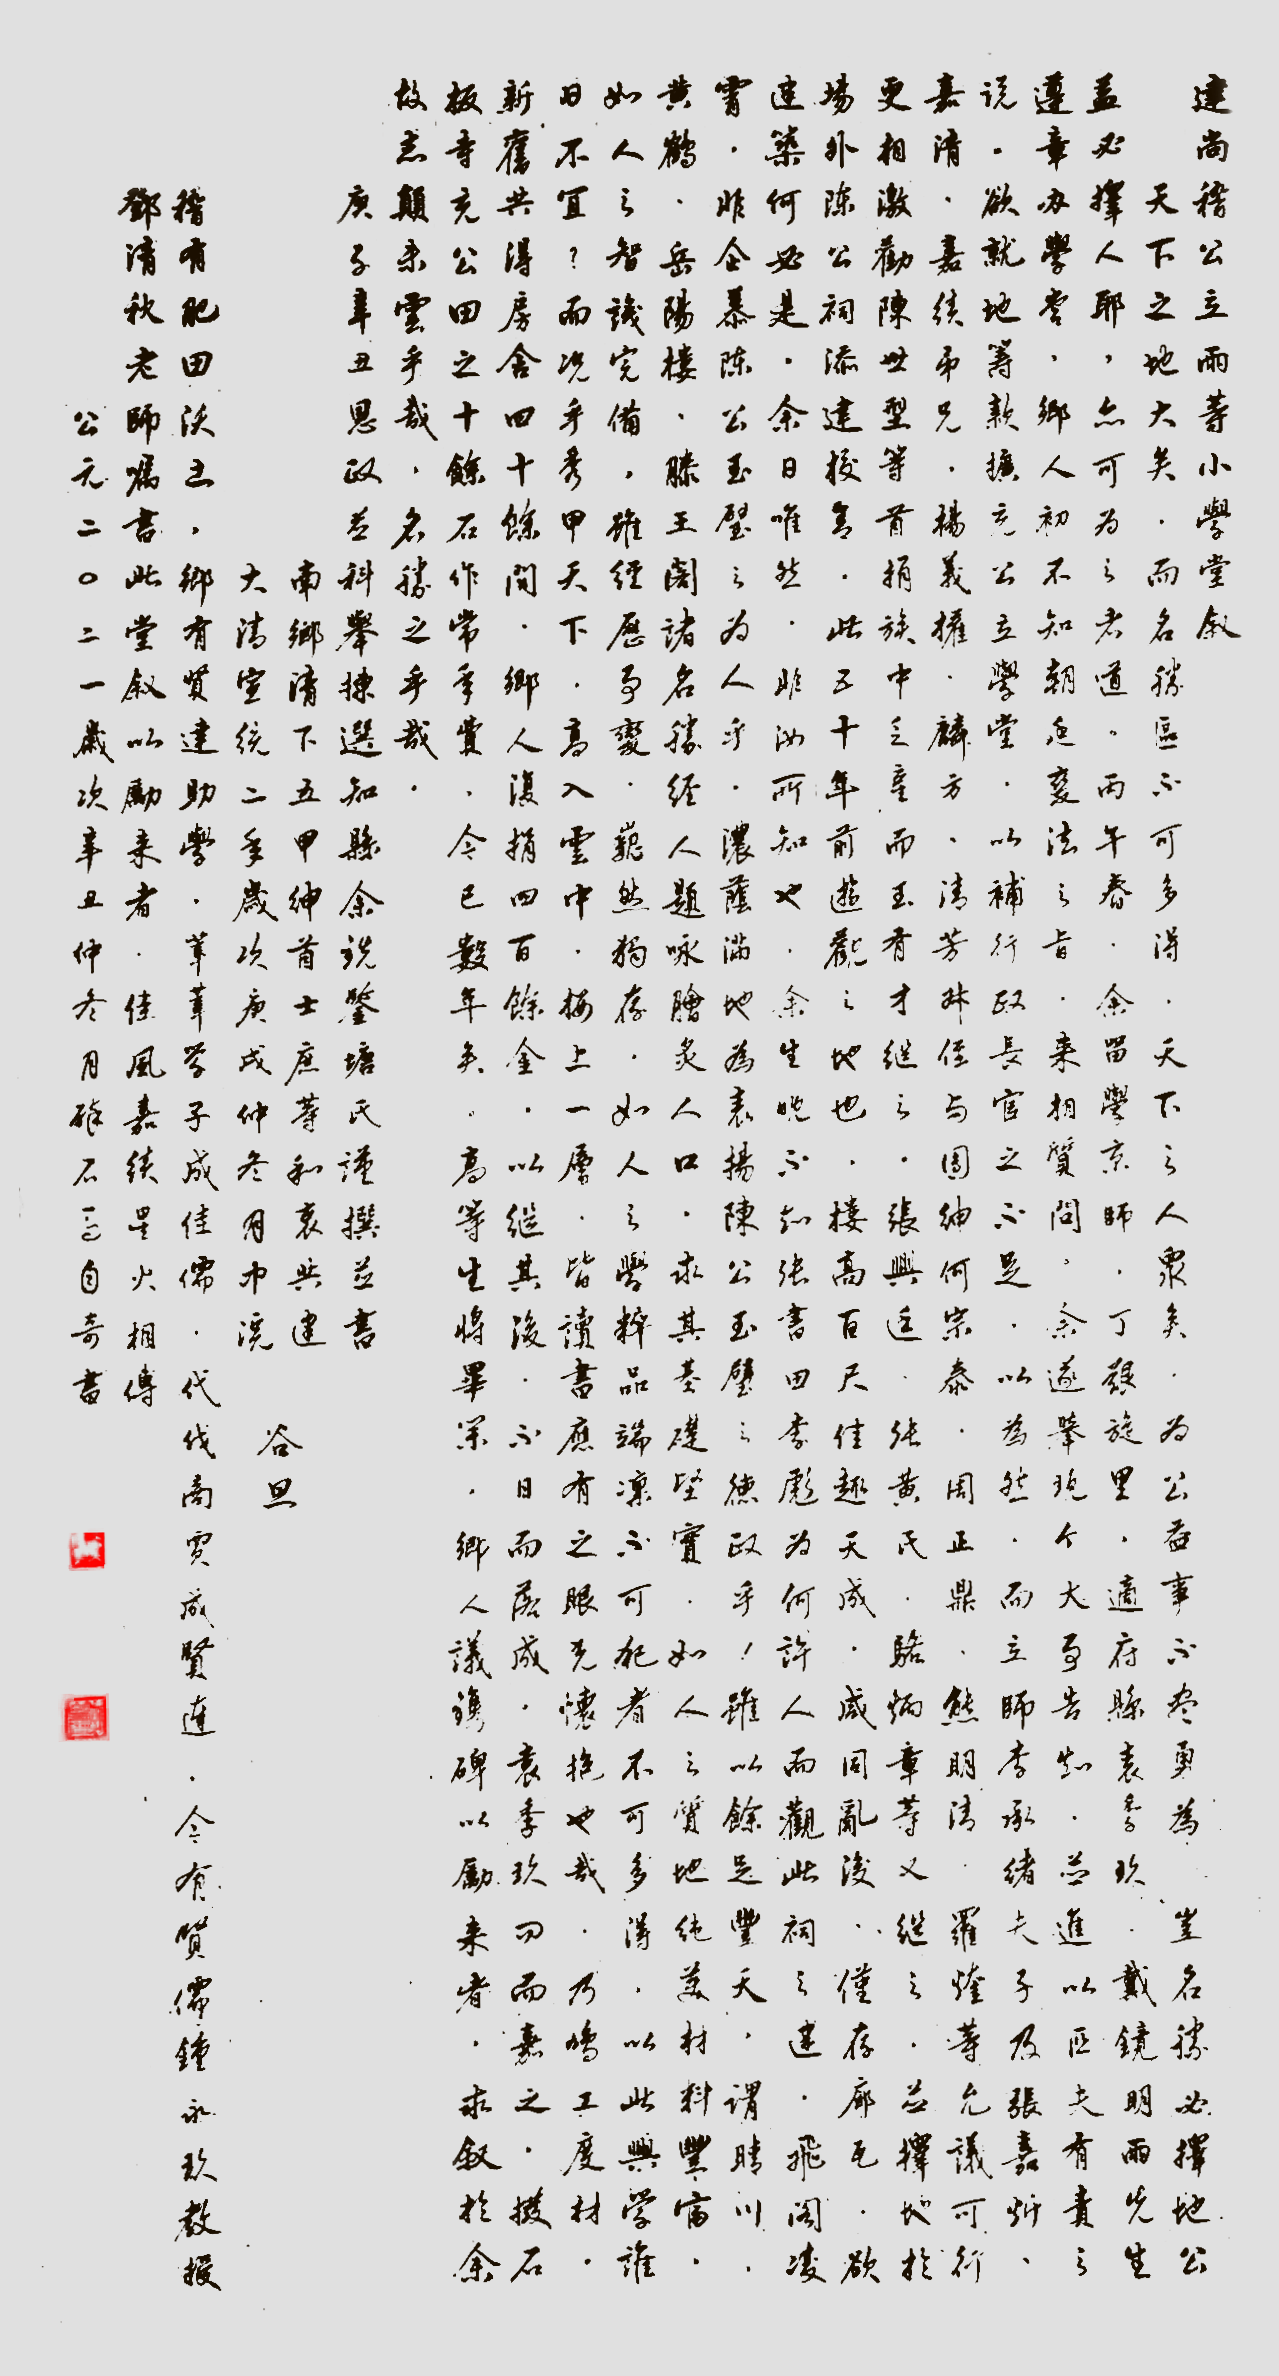 建尚稽公立兩等小學堂叙
天下之地大矣．而名勝區不可多得．天下之人衆矣．为公益事不尽勇為 豈名勝必擇地公
益必擇人耶，亦可为之者道．丙午春．余留學京師．丁艱旋里．適府縣袁季玖．戴鏡明兩先生
遵章办學堂，鄉人初不知朝廷变法之旨．来相質問，余遂舉現今大事告知．並進以匹夫有責之
说．欲就地筹款擴充公立學堂．以補行政長官之不足．以為然．而立師李承緒夫子及張嘉炘、
嘉清．嘉績弟兄．楊義權．麟方．清芳叔侄与團紳何宗泰．周正鼎．熊明清．羅煃等允議可行
更相激勸陳世型等首捐族中之産而玉有才继之．張興廷．张黄氏．駱炳章等又继之．並擇地於
場外陈公祠添建校舍．此五十年前遊觀之地也．樓高百尺佳趣天成．咸同亂後．僅存廊瓦．欲
建築何必是．余日唯然．非汝所知也．余生晚不知张書田李彪为何許人而觀此祠之建．飛阁凌
霄．非企慕陈公玉璧之为人乎．濃蔭滿地為表揚陳公玉璧之德政乎！雖以餘足豐天，謂晴川．
黄鶴．岳陽樓．滕王阁诸名勝经人題咏膾炙人口．求其基礎堅實．如人之質地纯美材料豐富．
如人之智識完備，雖經歷事變．巍然獨存．如人之學粹品端凛不可犯者不可多得．以此興学誰
日不宜？而况乎秀甲天下．高入雲中．樓上一層．皆讀書應有之眼光懷抱也哉．乃鳩工度材．
新舊共得房舍四十餘間．鄉人復捐四百餘金．以继其後．不日而落成．袁季玖曰而嘉之．撥石
板寺充公田之十餘石作常年費．今已數年矣．高等生将畢業．鄉人議鐫碑以勵来者．求叙於余
故志顛末雲乎哉．名勝之乎哉．
庚子辛丑恩政並科舉揀選知縣余铣鑒塘氏謹撰並書
南鄉清下五甲紳首士庶等和衷共建
大清宣统二年歲次庚戌仲冬月中浣 谷旦
稽有肥田沃土，鄉有贤達助學．莘莘学子成佳儒．代代商贾成賢達．今有贤儒鐘永玖教授
鄧清秋老師嘱書此堂叙以勵来者．佳風嘉績星火相傳
公元二〇二一歲次辛丑仲冬月 石 自奇書